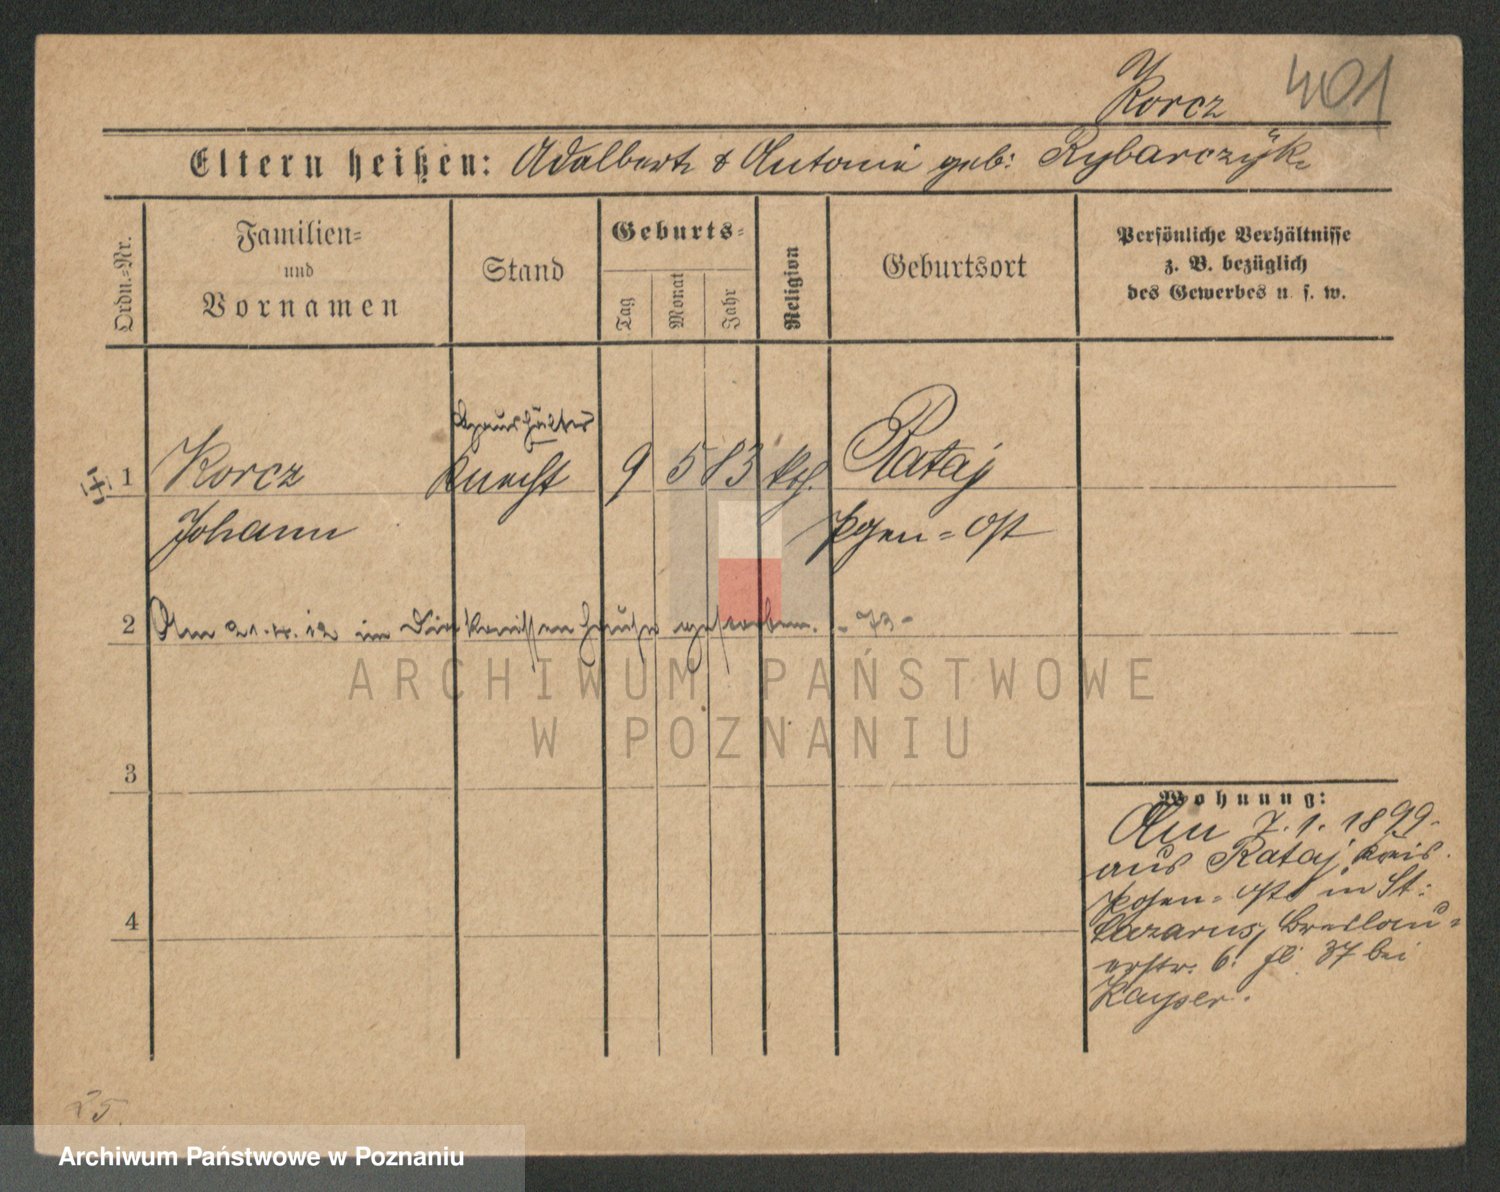 Korcz
401
Eltern heißen: Adalbert & Antonie geb: Rybarczÿk
Ordn.=Nr.
Familien=
und
Vornamen
Stand
Geburts=
Tag
Monat
Jahr
Religion
Geburtsort
Persönliche Verhältnisse
z. B. bezüglich
des Gewerbes u. s. w.
Haushälter
1 Korcz Knecht 9 5 83 kth. Rataj
Johann Posen=Ost
2 Am 21.4.12 im Diakonissenhause gestorben. -73-
ARCHIWUM PAŃSTWOWE
W POZNANIU
3
Wohnung:
Am 7.1.1899.
aus Rataj Kreis
Posen=Ost in St:
4
Lazarus, Breslau=
erstr. 6. fl. 37 bei
Kayser.
25
Archiwum Państwowe w Poznaniu